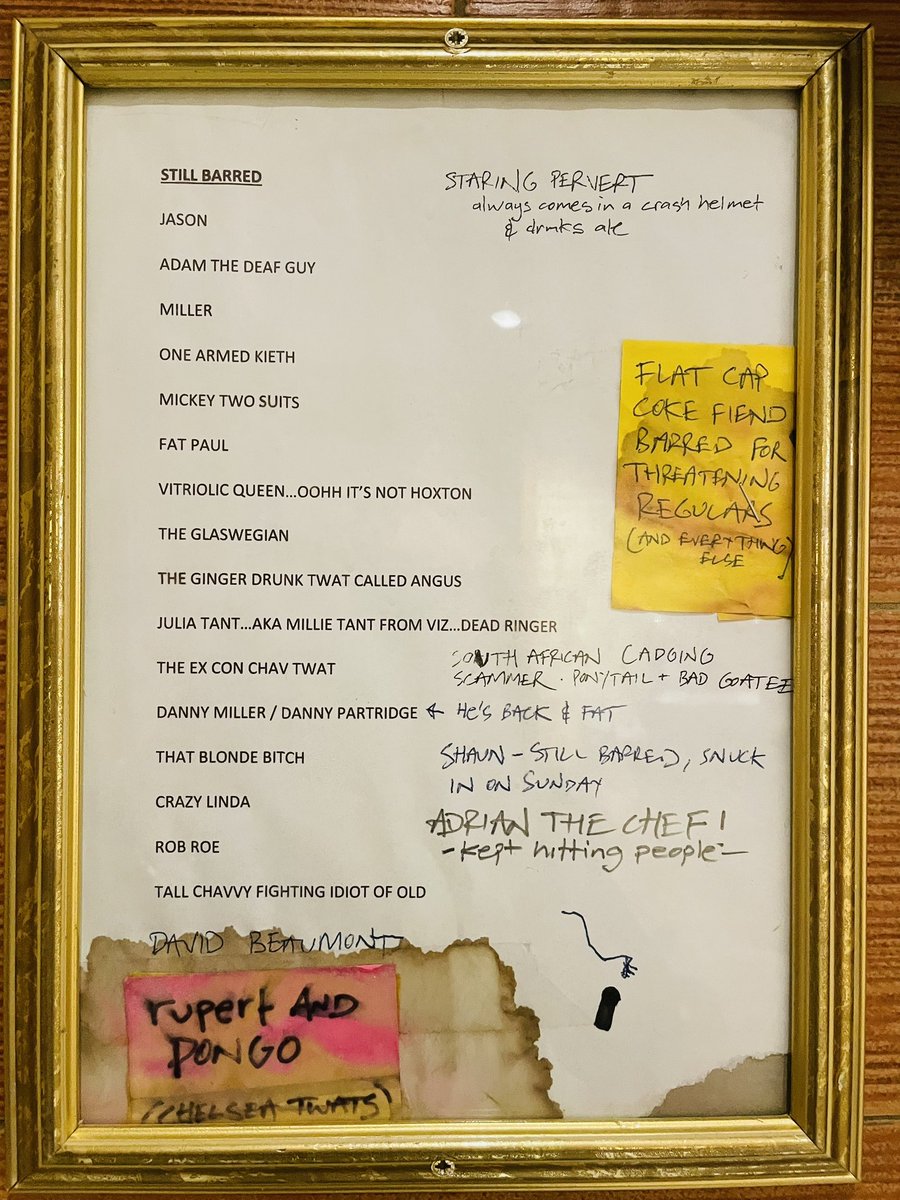 STILL BARRED
JASON
ADAM THE DEAF GUY
MILLER
ONE ARMED KIETH
MICKEY TWO SUITS
FAT PAUL
VITRIOLIC QUEEN...OOHH IT'S NOT HOXTON
THE GLASWEGIAN
THE GINGER DRUNK TWAT CALLED ANGUS
JULIA TANT...AKA MILLIE TANT FROM VIZ...DEAD RINGER
THE EX CON CHAV TWAT
DANNY MILLER / DANNY PARTRIDGE ← HE'S BACK & FAT
THAT BLONDE BITCH
CRAZY LINDA
ROB ROE
TALL CHAVVY FIGHTING IDIOT OF OLD
DAVID BEAUMONT
rupert AND
PONGO
(CHELSEA TWATS)
STARING PERVERT
always comes in a crash helmet
& drinks ale
FLAT CAP
COKE FIEND
BARRED FOR
THREATENING
REGULARS
(AND EVERYTHING)
ELSE
SOUTH AFRICAN CADGING
SCAMMER. PONYTAIL + BAD GOATEE
SHAUN - STILL BARRED, SNUCK
IN ON SUNDAY
ADRIAN THE CHEF!
- kept hitting people -